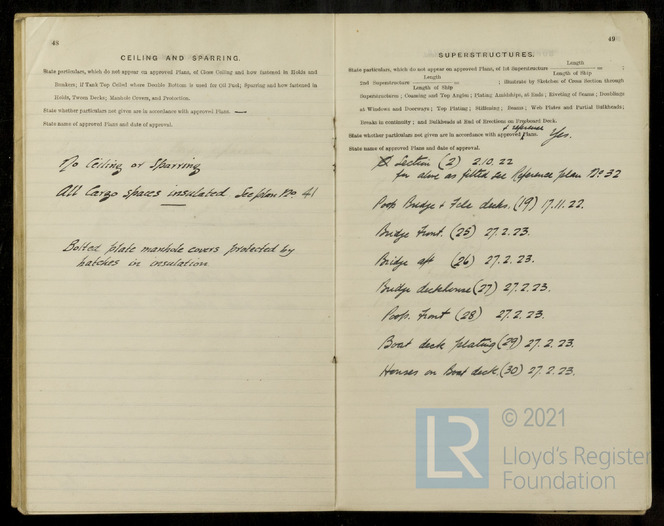 48
CEILING AND SPARRING.
State particulars, which do not appear on approved Plans, of Close Ceiling and how fastened in Holds and
Bunkers; if Tank Top Ceiled where Double Bottom is used for Oil Fuel; Sparring and how fastened in
Holds, Tween Decks; Manhole Covers, and Protection.
State whether particulars not given are in accordance with approved Plans. —
State name of approved Plans and date of approval.
No Ceiling or Sparring
All Cargo spaces insulated See plan No 41
Bolted plate manhole covers protected by
hatches in insulation
49
SUPERSTRUCTURES.
State particulars, which do not appear on approved Plans, of 1st Superstructure Length / Length of Ship = ;
2nd Superstructure Length / Length of Ship ; Illustrate by Sketches of Cross Section through
Superstructures; Coaming and Top Angles; Plating Amidships, at Ends; Riveting of Seams; Doublings
at Windows and Doorways; Top Plating; Stiffening; Beams; Web Plates and Partial Bulkheads;
Breaks in continuity; and Bulkheads at End of Erections on Freeboard Deck.
State whether particulars not given are in accordance with approved & reference Plans. Yes.
State name of approved Plans and date of approval.
Section (2) 2.10.22
for above as fitted see Reference plan No 32
Poop Bridge & Fcle decks. (19) 17.11.22.
Bridge Front. (25) 27.2.23.
Bridge aft (26) 27.2.23.
Bridge deckhouse (27) 27.2.23.
Poop. Front (28) 27.2.23.
Boat deck plating (29) 27.2.23.
Houses on Boat deck (30) 27.2.23.
LR
© 2021
Lloyd's Register
Foundation